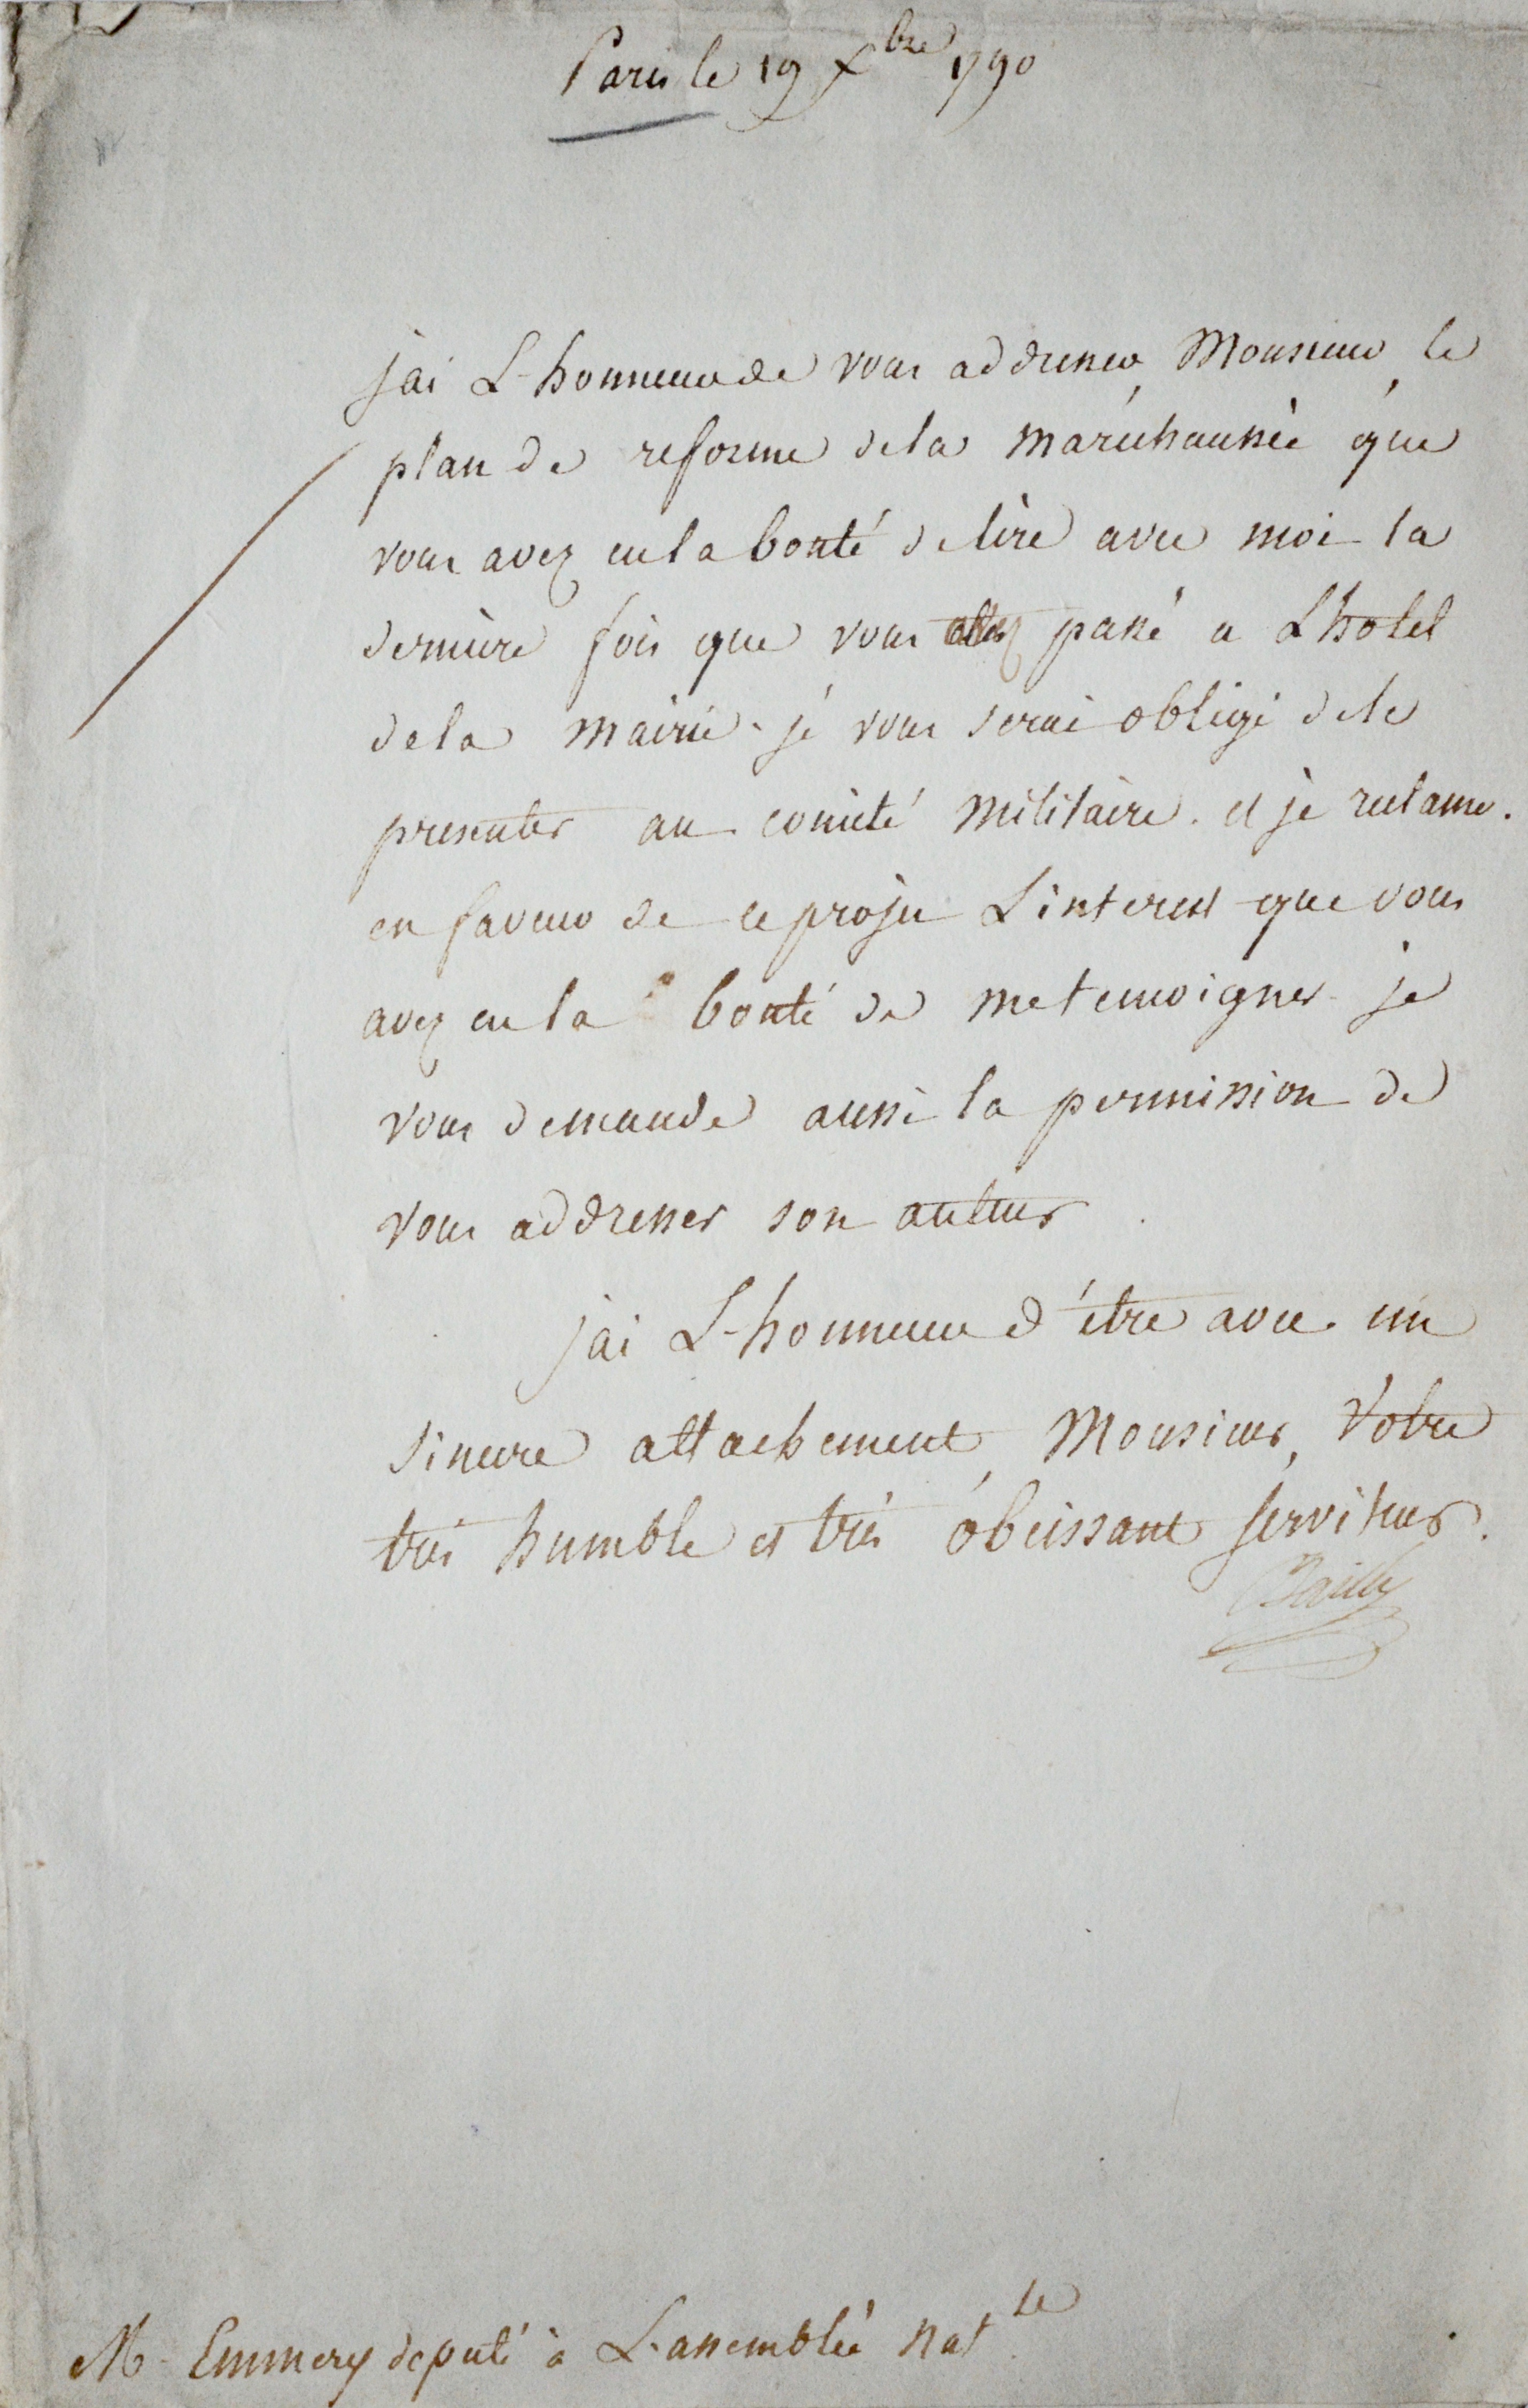 Paris le 19 Xbre 1790
j'ai L'honneur de vous addresser, Monsieur, le
plan de reforme de la maréchaussée que
vous avez eu la bonté de lire avec moi la
derniere fois que vous passé a Lhotel
de la Mairie. je vous serai obligé de le
presenter au comité Militaire. et je reclame.
en faveur de ce projet L'interest que vous
avez eu la bonté de me temoigner. je
vous demande aussi la permission de
vous addresser son auteur
j'ai L'honneur d'être avec un
sincere attachement, Monsieur, Votre
très humble et très obeissant serviteur.
Bailly
M. Emmery deputé à L'assemblée Natle